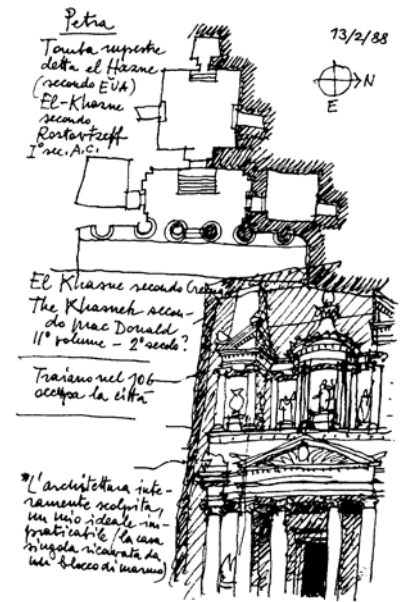 Petra
13/2/88
Tomba rupestre
detta el Hasne
(secondo EUA)
El-Khasne
secondo
Rostovtzeff
I° sec. A.C.
N
E
El Khasne secondo
The Khasneh secon-
do Mac Donald
11° volume - 2° secolo?
Traiano nel 106
occupa la città
*L'architettura inte-
ramente scolpita,
un mio ideale im-
praticabile (la casa
singola ricavata da
un blocco di marmo)